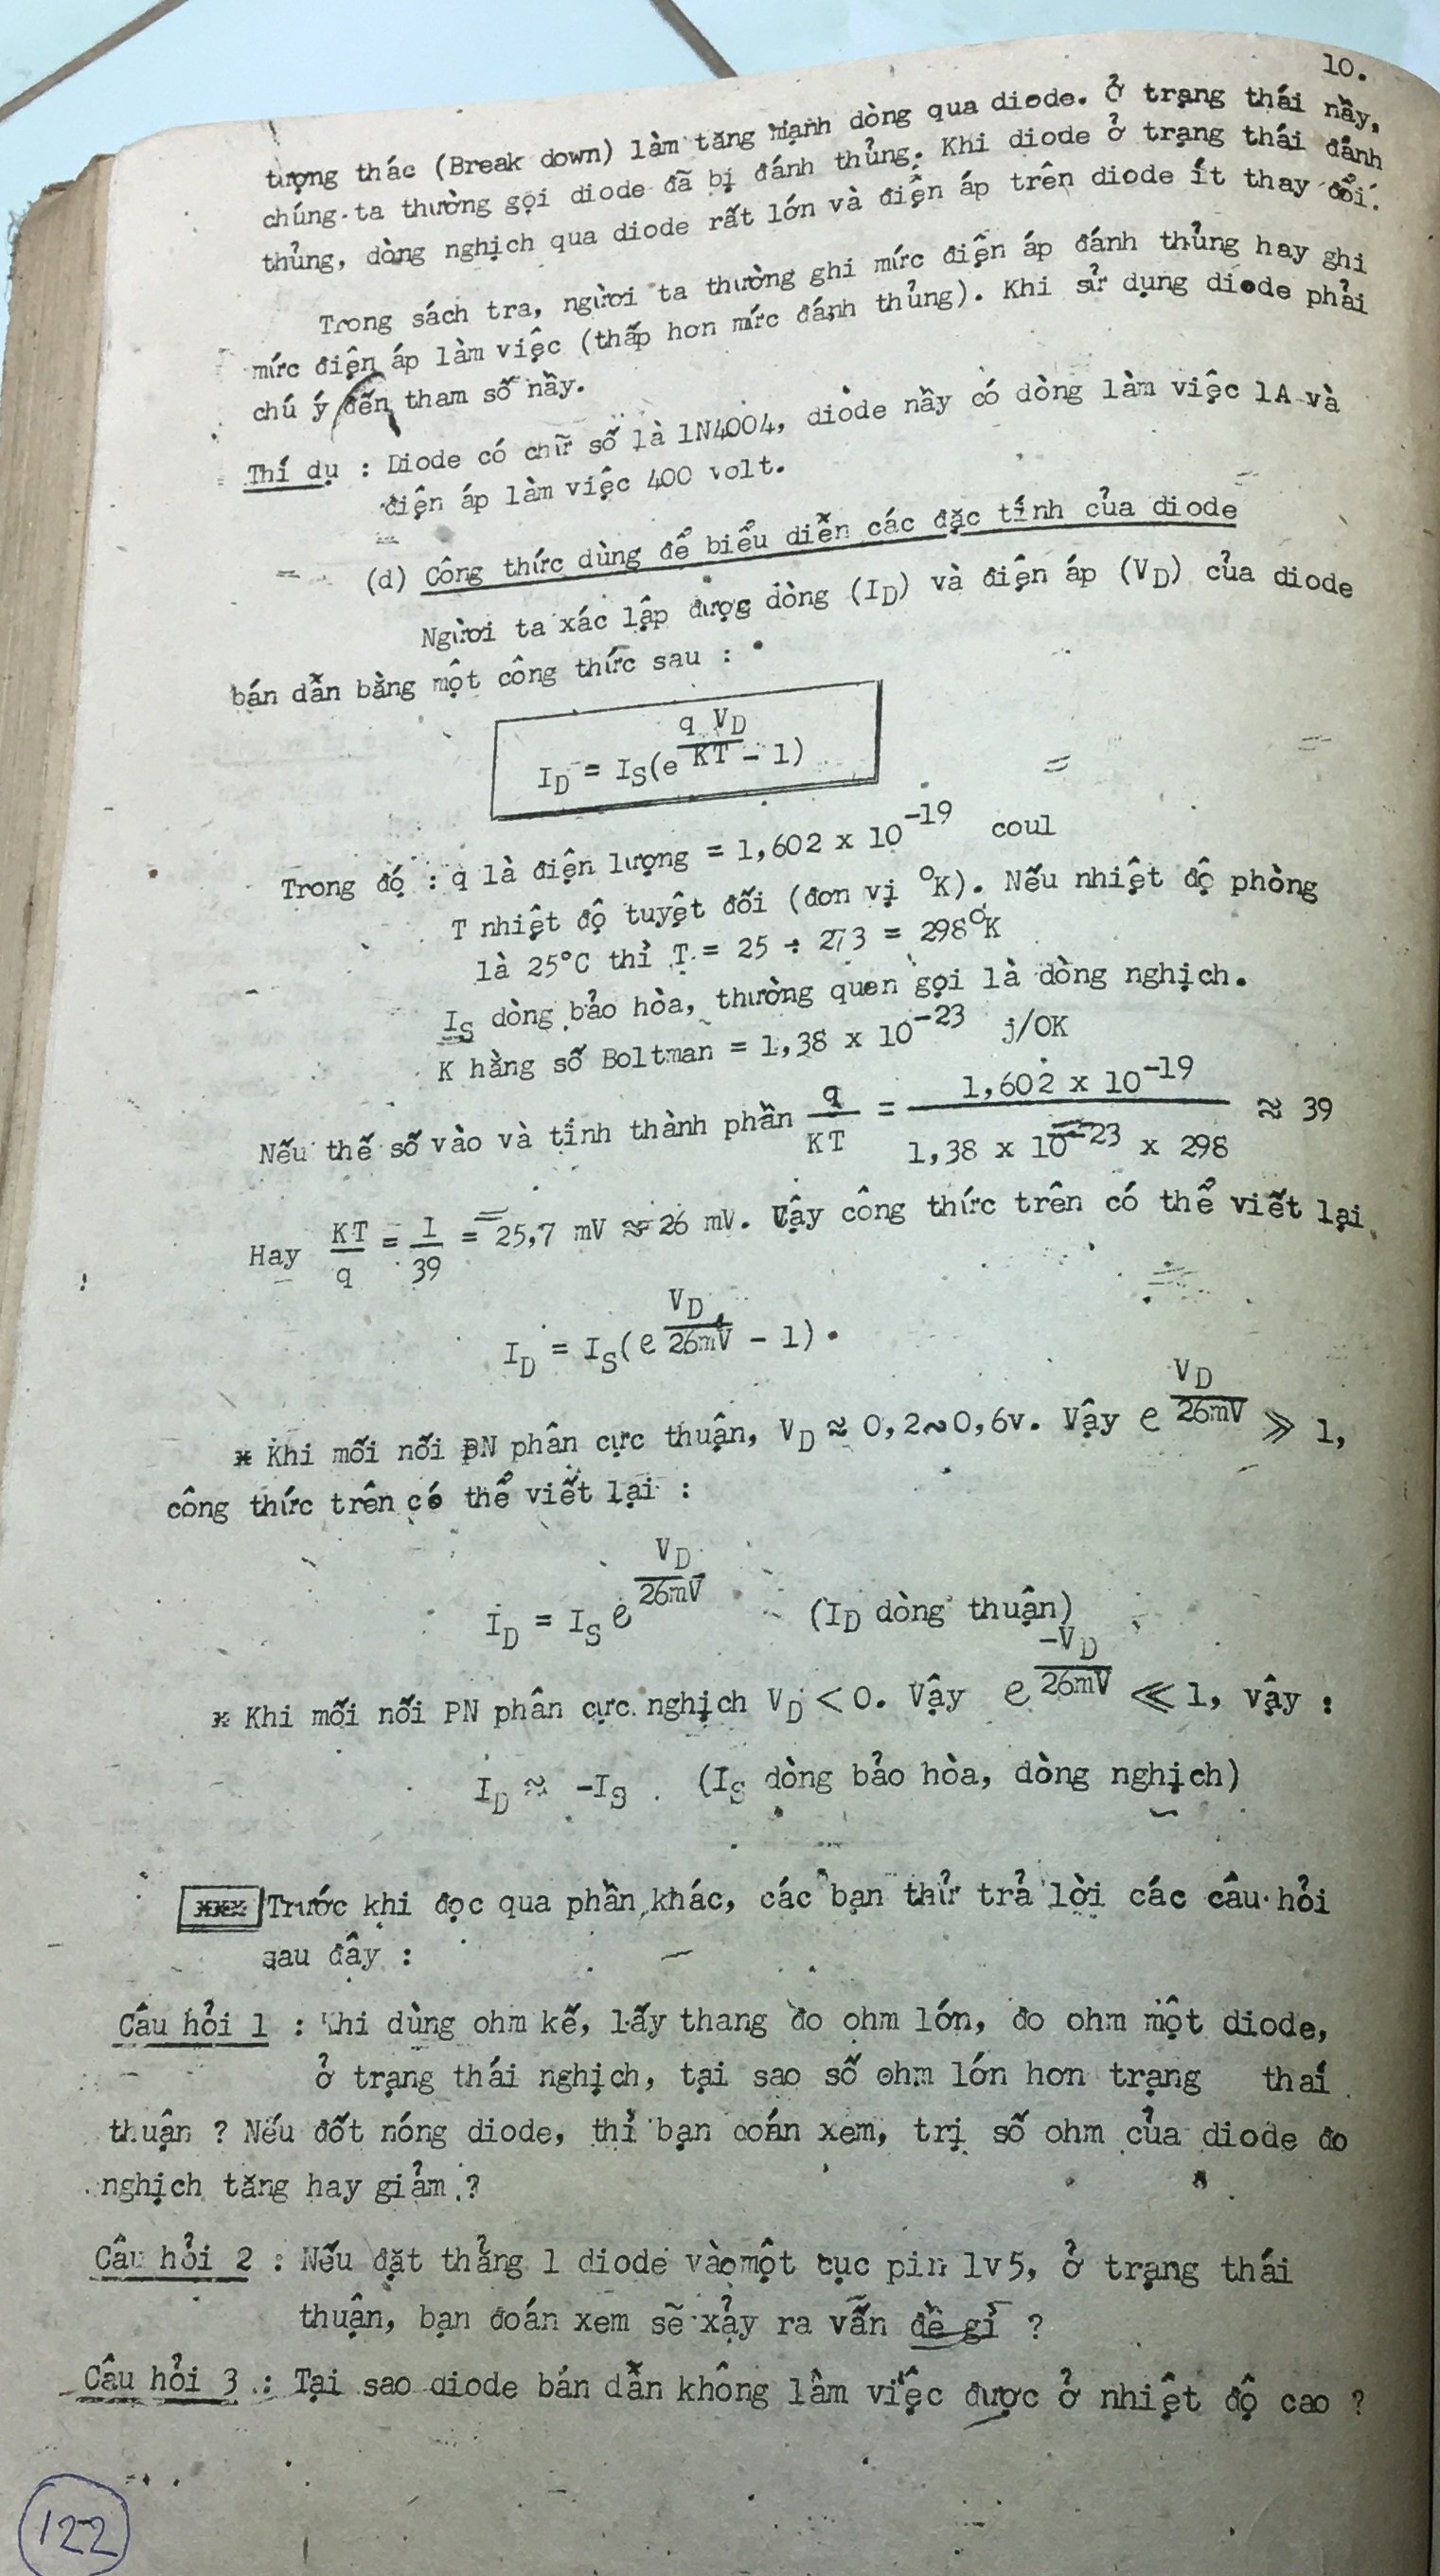 10.
tượng thác (Break down) làm tăng mạnh dòng qua diode. Ở trạng thái nầy,
chúng ta thường gọi diode đã bị đánh thủng. Khi diode ở trạng thái đánh
thủng, dòng nghịch qua diode rất lớn và điện áp trên diode ít thay đổi.
Trong sách tra, người ta thường ghi mức điện áp đánh thủng hay ghi
mức điện áp làm việc (thấp hơn mức đánh thủng). Khi sử dụng diode phải
chú ý đến tham số nầy.
Thí dụ : Diode có chữ số là 1N4004, diode nầy có dòng làm việc 1A và
điện áp làm việc 400 volt.
(d) Công thức dùng để biểu diễn các đặc tính của diode
Người ta xác lập được dòng (I_D) và điện áp (V_D) của diode
bán dẫn bằng một công thức sau :
I_D = I_S(e^(q V_D / KT) - 1)
Trong đó : q là điện lượng = 1,602 x 10^-19 coul
T nhiệt độ tuyệt đối (đơn vị °K). Nếu nhiệt độ phòng
là 25°C thì T = 25 + 273 = 298°K
I_S dòng bảo hòa, thường quen gọi là dòng nghịch.
K hằng số Boltman = 1,38 x 10^-23 j/OK
Nếu thế số vào và tính thành phần q/KT = 1,602 x 10^-19 / 1,38 x 10^-23 x 298 ≈ 39
Hay KT/q = 1/39 = 25,7 mV ≈ 26 mV. Vậy công thức trên có thể viết lại
I_D = I_S(e^(V_D / 26mV) - 1).
* Khi mối nối PN phân cực thuận, V_D ≈ 0,2~0,6v. Vậy e^(V_D / 26mV) ≫ 1,
công thức trên có thể viết lại :
I_D = I_S e^(V_D / 26mV) (I_D dòng thuận)
* Khi mối nối PN phân cực nghịch V_D < 0. Vậy e^(-V_D / 26mV) ≪ 1, vậy :
I_D ≈ -I_S (I_S dòng bảo hòa, dòng nghịch)
*** Trước khi đọc qua phần khác, các bạn thử trả lời các câu hỏi
sau đây :
Câu hỏi 1 : Khi dùng ohm kế, lấy thang đo ohm lớn, đo ohm một diode,
ở trạng thái nghịch, tại sao số ohm lớn hơn trạng thái
thuận ? Nếu đốt nóng diode, thì bạn đoán xem, trị số ohm của diode đo
nghịch tăng hay giảm ?
Câu hỏi 2 : Nếu đặt thẳng 1 diode vào một cục pin 1v5, ở trạng thái
thuận, bạn đoán xem sẽ xảy ra vấn đề gì ?
Câu hỏi 3 : Tại sao diode bán dẫn không làm việc được ở nhiệt độ cao ?
122